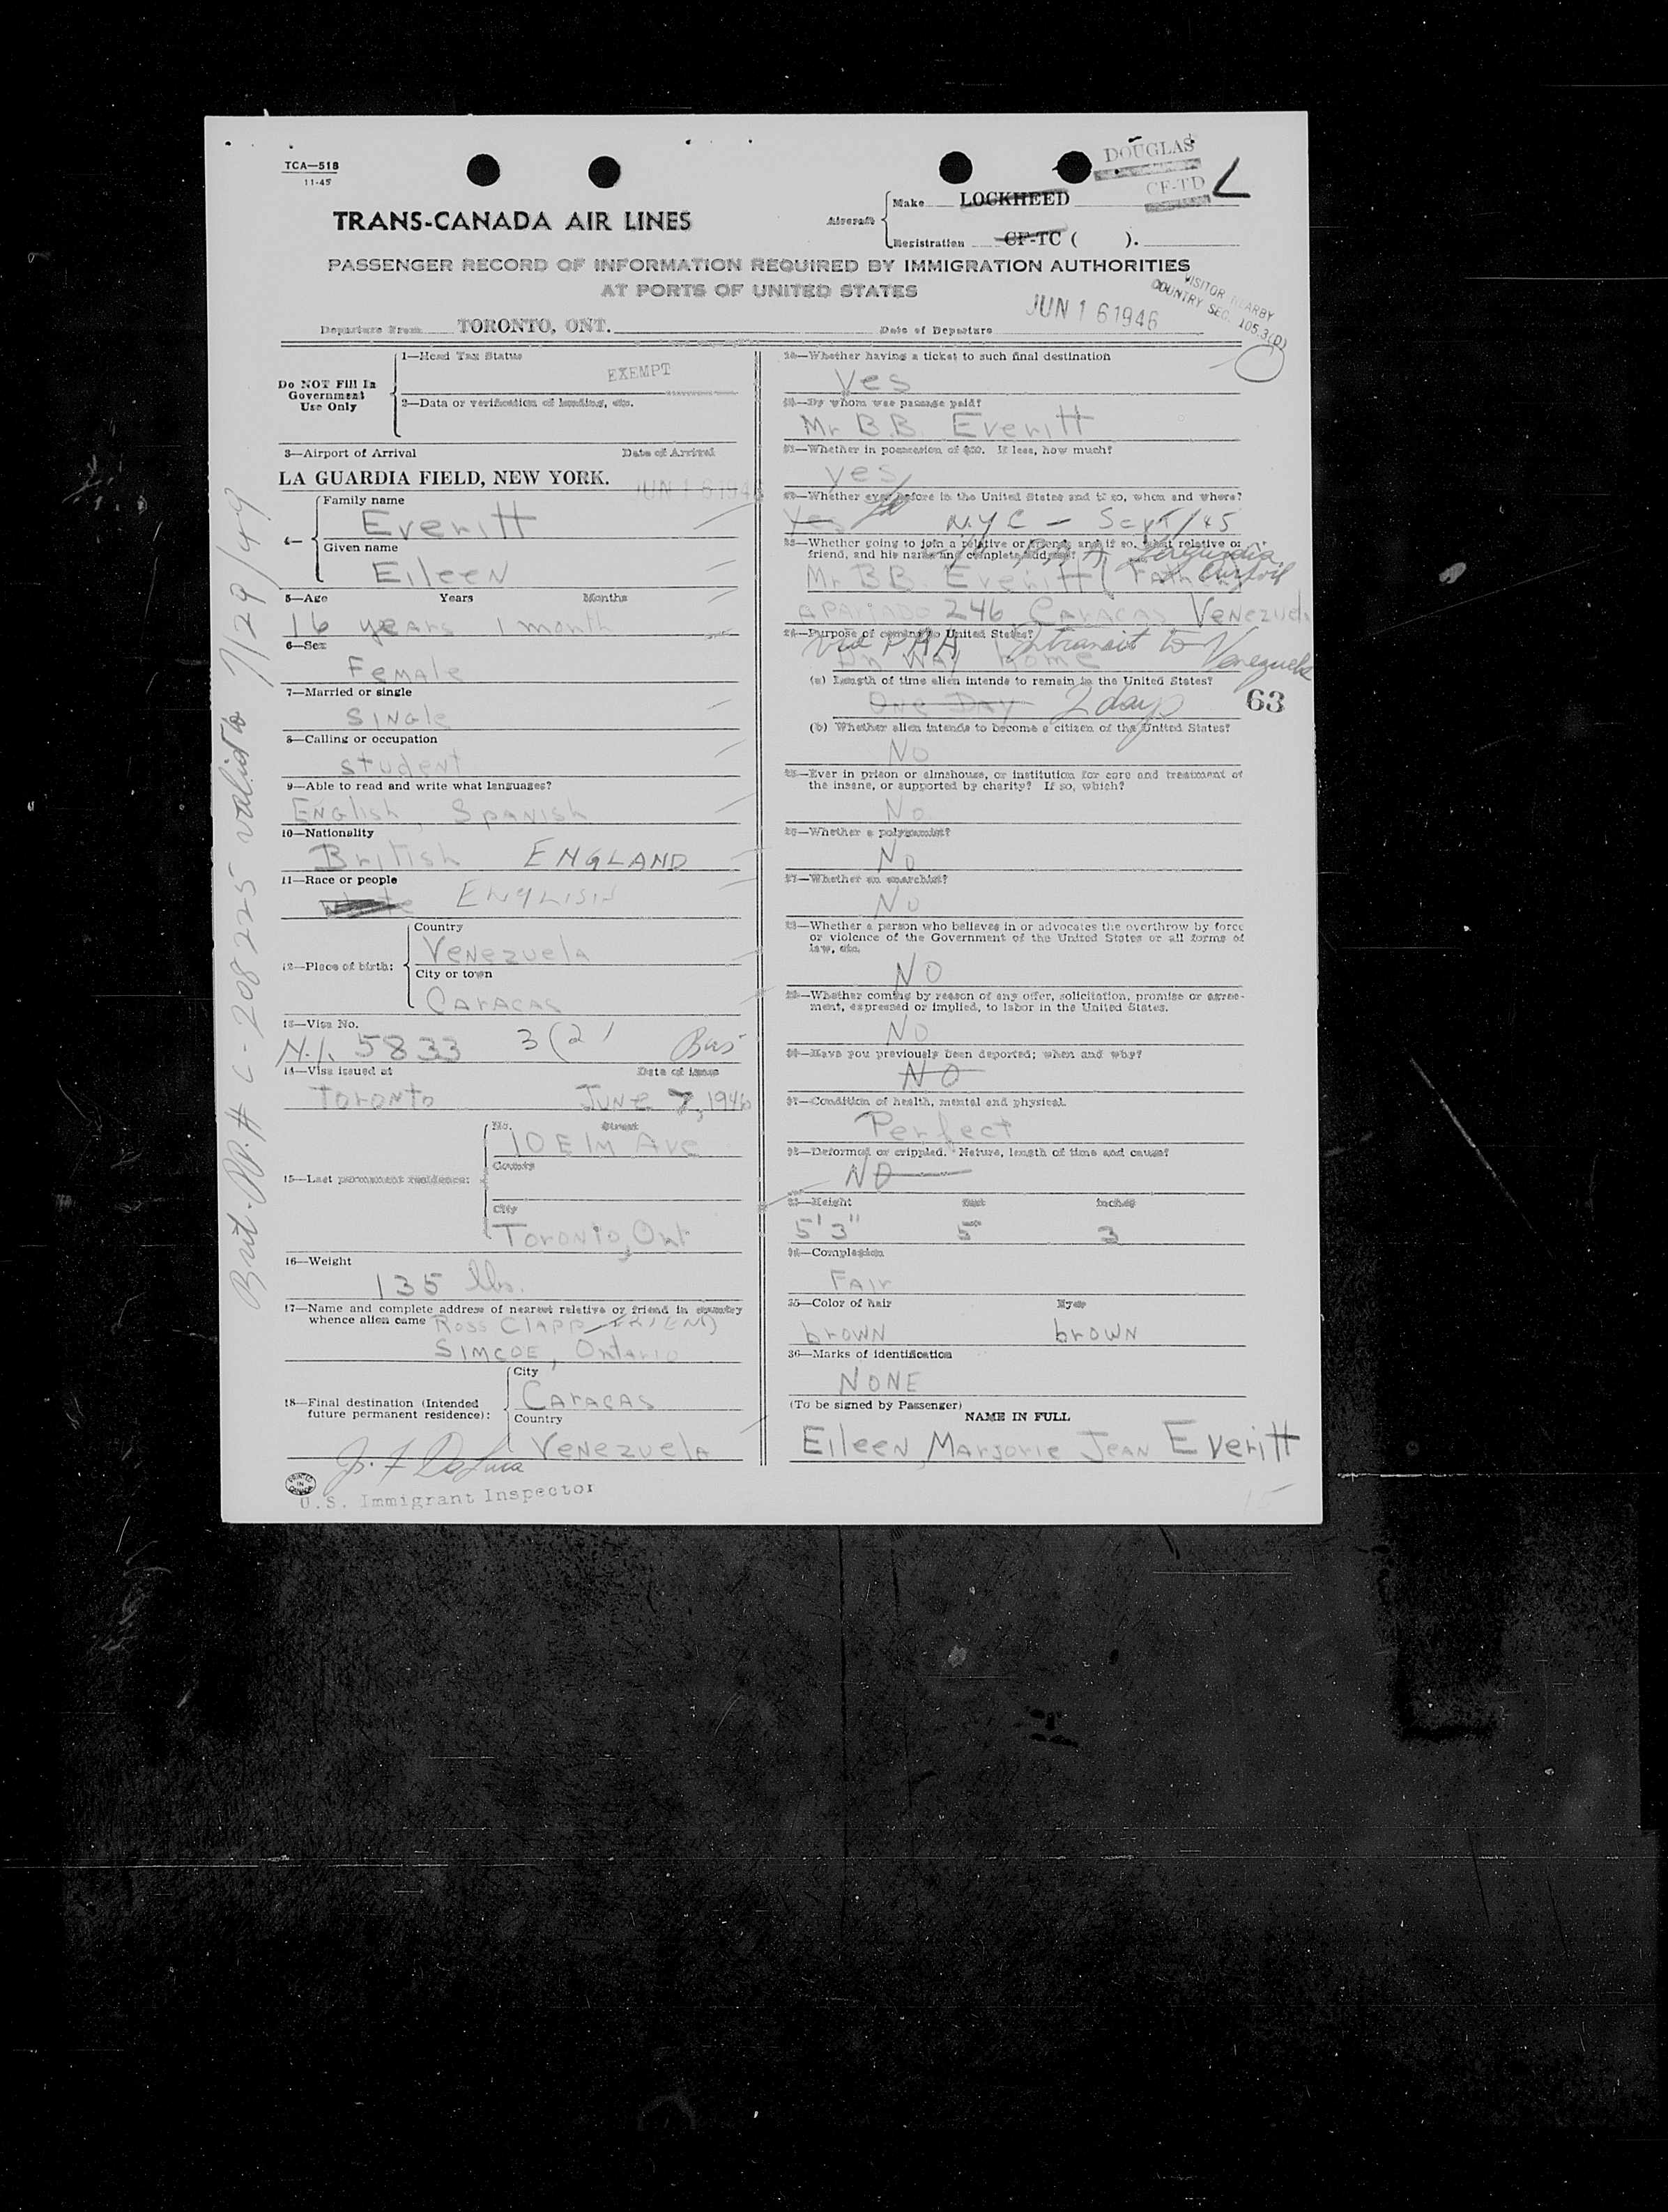 TCA—518
11-45
DOUGLAS
CF-TD
TRANS-CANADA AIR LINES
Aircraft
Make LOCKHEED
Registration CF-TC ( ).
PASSENGER RECORD OF INFORMATION REQUIRED BY IMMIGRATION AUTHORITIES
AT PORTS OF UNITED STATES
VISITOR NEARBY
COUNTRY SEC. 105.3(D)
Departure From TORONTO, ONT. Date of Departure JUN 16 1946
Do NOT Fill In
Government
Use Only
1—Head Tax Status
EXEMPT
2—Data or verification of landing, etc.
3—Airport of Arrival Date of Arrival
LA GUARDIA FIELD, NEW YORK. JUN 16 1946
4—
Family name
Everitt
Given name
Eileen
5—Age Years Months
16 years 1 month
6—Sex
Female
7—Married or single
Single
8—Calling or occupation
student
9—Able to read and write what languages?
English, Spanish
10—Nationality
British ENGLAND
11—Race or people
White ENGLISH
12—Place of birth:
Country
Venezuela
City or town
Caracas
13—Visa No.
N.I. 5833 3(2)
14—Visa issued at Date of issue
Toronto June 7, 1946
15—Last permanent residence:
No. Street
10 Elm Ave
County
City
Toronto, Ont
16—Weight
135 lbs.
17—Name and complete address of nearest relative or friend in country
whence alien came Ross Clapp FRIEND
SIMCOE, Ontario
18—Final destination (Intended
future permanent residence):
City
Caracas
Country
Venezuela
U.S. Immigrant Inspector
PRINTED IN CANADA
Brit. PP. # C-208225 valid to 7/29/49
19—Whether having a ticket to such final destination
Yes
20—By whom was passage paid?
Mr B.B. Everitt
21—Whether in possession of $50. If less, how much?
yes
22—Whether ever before in the United States and if so, when and where?
Yes NYC - Sept/45
23—Whether going to join a relative or friend and if so, what relative or
friend, and his name and complete address?
Mr BB. Everitt (Father)
Apartado 246 Caracas Venezuela
24—Purpose of coming to United States?
Via PAA Intransit to Venezuela
On way home
(a) Length of time alien intends to remain in the United States?
One Day 2 days
63
(b) Whether alien intends to become a citizen of the United States?
No
25—Ever in prison or almshouse, or institution for care and treatment of
the insane, or supported by charity? If so, which?
No
26—Whether a polygamist?
No
27—Whether an anarchist?
No
28—Whether a person who believes in or advocates the overthrow by force
or violence of the Government of the United States or all forms of
law, etc.
NO
29—Whether coming by reason of any offer, solicitation, promise or agree-
ment, expressed or implied, to labor in the United States.
NO
30—Have you previously been deported; when and why?
NO
31—Condition of health, mental and physical.
Perfect
32—Deformed or crippled. Nature, length of time and cause?
NO
33—Height feet inches
5'3" 5 3
34—Complexion
Fair
35—Color of hair Eyes
brown brown
36—Marks of identification
NONE
(To be signed by Passenger)
NAME IN FULL
Eileen Marjorie Jean Everitt